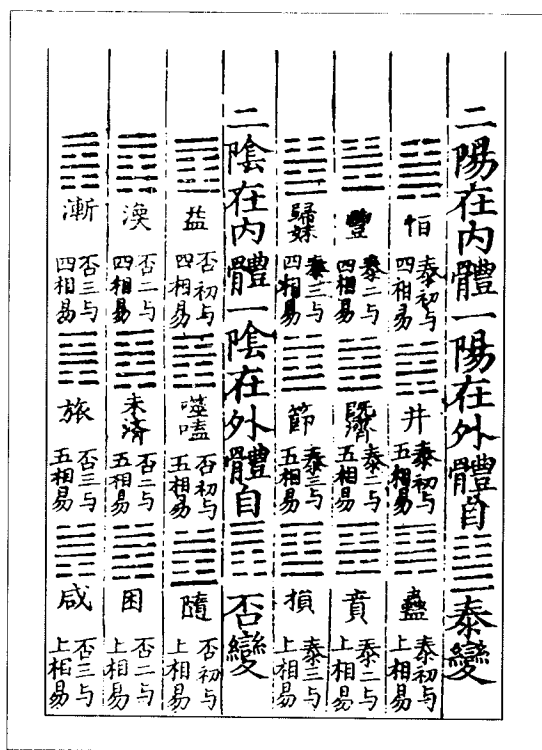 二陽在内體一陽在外體自䷊泰變
䷟恒泰初与四相易䷯井泰初与五相易䷑蠱泰初与上相易
䷶豐泰二与四相易䷾既濟泰二与五相易䷕賁泰二与上相易
䷵歸妹泰三与四相易䷻節泰三与五相易䷨損泰三与上相易
二陰在内體一陰在外體自䷋否變
䷩益否初与四相易䷔噬嗑否初与五相易䷐隨否初与上相易
䷺渙否二与四相易䷿未濟否二与五相易䷮困否二与上相易
䷴漸否三与四相易䷷旅否三与五相易䷞咸否三与上相易